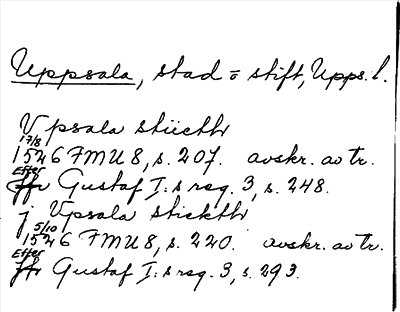 Uppsala, stad o stift, Upps. l.
Vpsala stücth
17/8
1526 FMU 8, s. 207. avskr. av tr.
Efter
Gustaf I:s reg. 3, s. 248.
j Vpsala stickth
5/10
1526 FMU 8, s. 220. avskr. av tr.
Efter
Gustaf I:s reg. 3, s. 293.